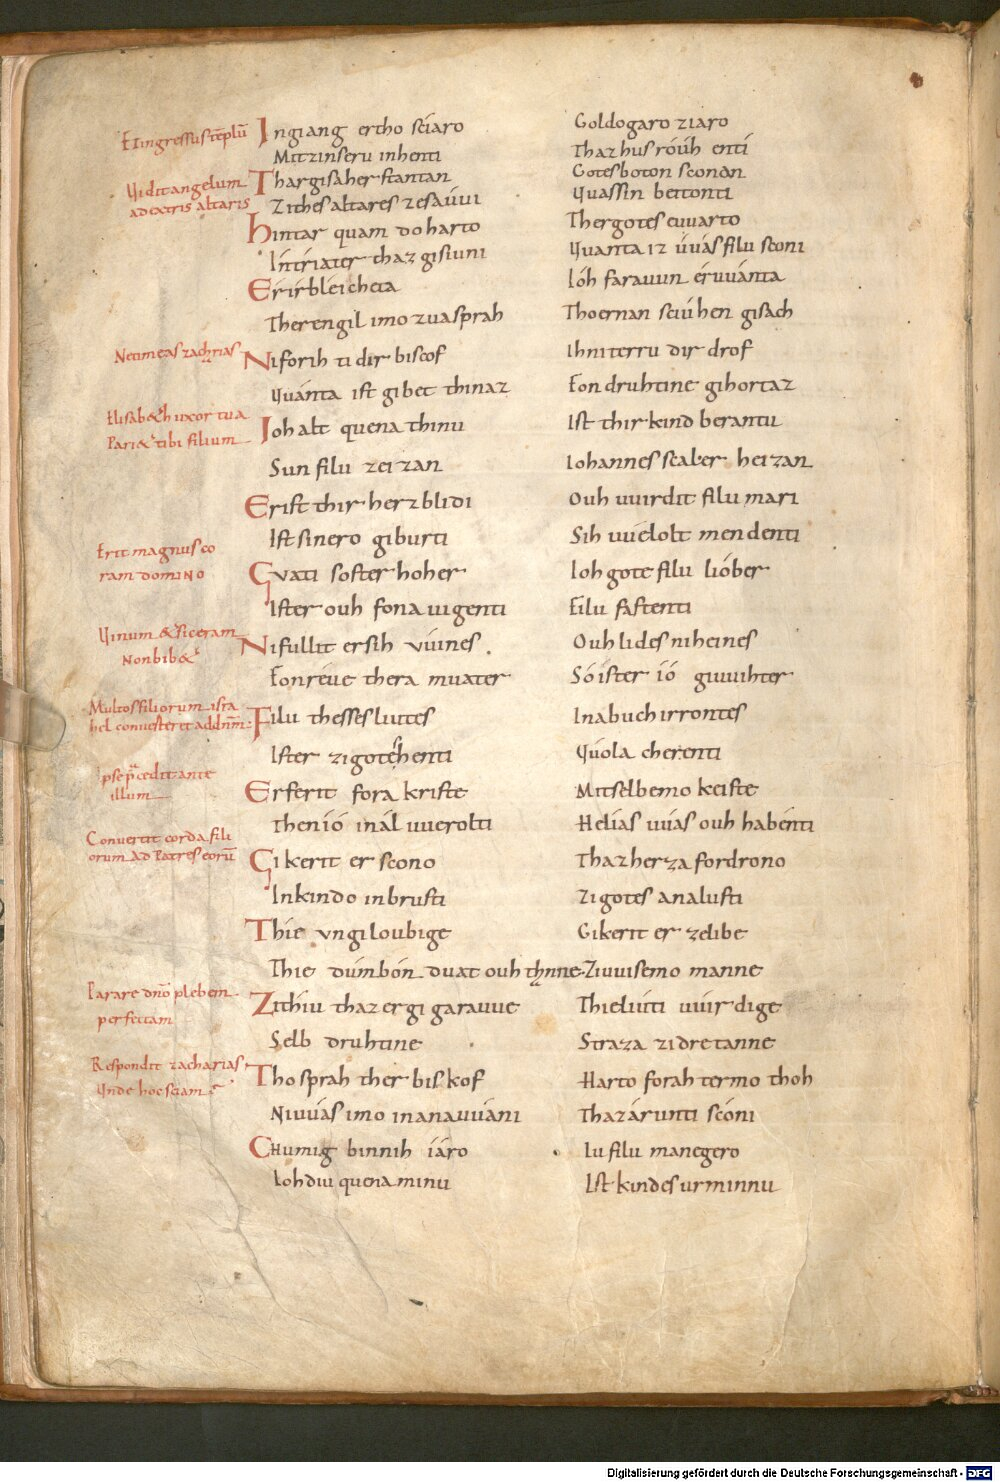 Et ingressus te̅plu̅
Ingiang ertho sciaro Goldogaro ziaro
Mit zinseru inhenti Thaz hus róuh enti
Vidit angelum
Thar gisah er stantan Gotes boton sconan
ad extris altaris
Zi thes altares zesáuui Quas sin beitonti
Hintar quam do harto Ther gotes euuarto
Intriater thaz gisiuni Quanta iz uúas filu sconi
Er irbleicheta Ióh farauun éruuánta
Ther engil imo zua sprah Tho er nan sciúhen gisach
Ne timeas zacharias
Ni forihti dir biscof Ih ni terru dir drof
Quánta ist gibet thinaz Fon druhtine gihortaz
Elisabeth uxor tua
Ioh alt quena thinu Ist thir kind berantu
Pariet tibi filium
Sun filu zeizan Iohannes scal er heizan
Er ist thir herzblidi Ouh uuirdit filu mari
Ist sinero giburti Sih uúelolt mendenti
Erit magnus co
ram domino
Guati so ist er hoher Ioh gote filu lióber
Ist er ouh fona iugenti Filu fastenti
Vinum et siceram
Ni fullit er sih uúines Ouh lides niheines
non bibet
Fon réue thera muater Só ist er ió giuuihter
Multos filiorum isra
hel convertet et ad dn̅m̅
Filu thesses liutes In abuch irrontes
Ist er zi gote cherenti Uúola cherenti
Ipse p̅cedit ante
illum
Er ferit fora kriste Mit selbemo keiste
Then ió in ál uuerolti Helias uúas ouh habénti
Convertit corda fili
orum ad patres eoru̅
Gikerit er scono Thaz herza fordrono
In kindo inbrusti Zi gotes analusti
Thie ungiloubige Gikerit er zelibe
Thie dúmbón duat ouh thenne Zi uuisemo manne
Parare dn̅o plebem
perfectam
Zi thiu thaz er gigarauue Thie liuti uuirdige
Selb druhtine Straza zi dretanne
Respondit zacharias
Unde hoc sciam
Tho sprah ther biskof Harto forahtermo thoh
Ni uuás imo in anauuáni Thaz árunti scóni
Chumig bin ih iáro Iu filu manegero
Ioh diu quena minu Ist kindes urminnu
Digitalisierung gefördert durch die Deutsche Forschungsgemeinschaft - DFG